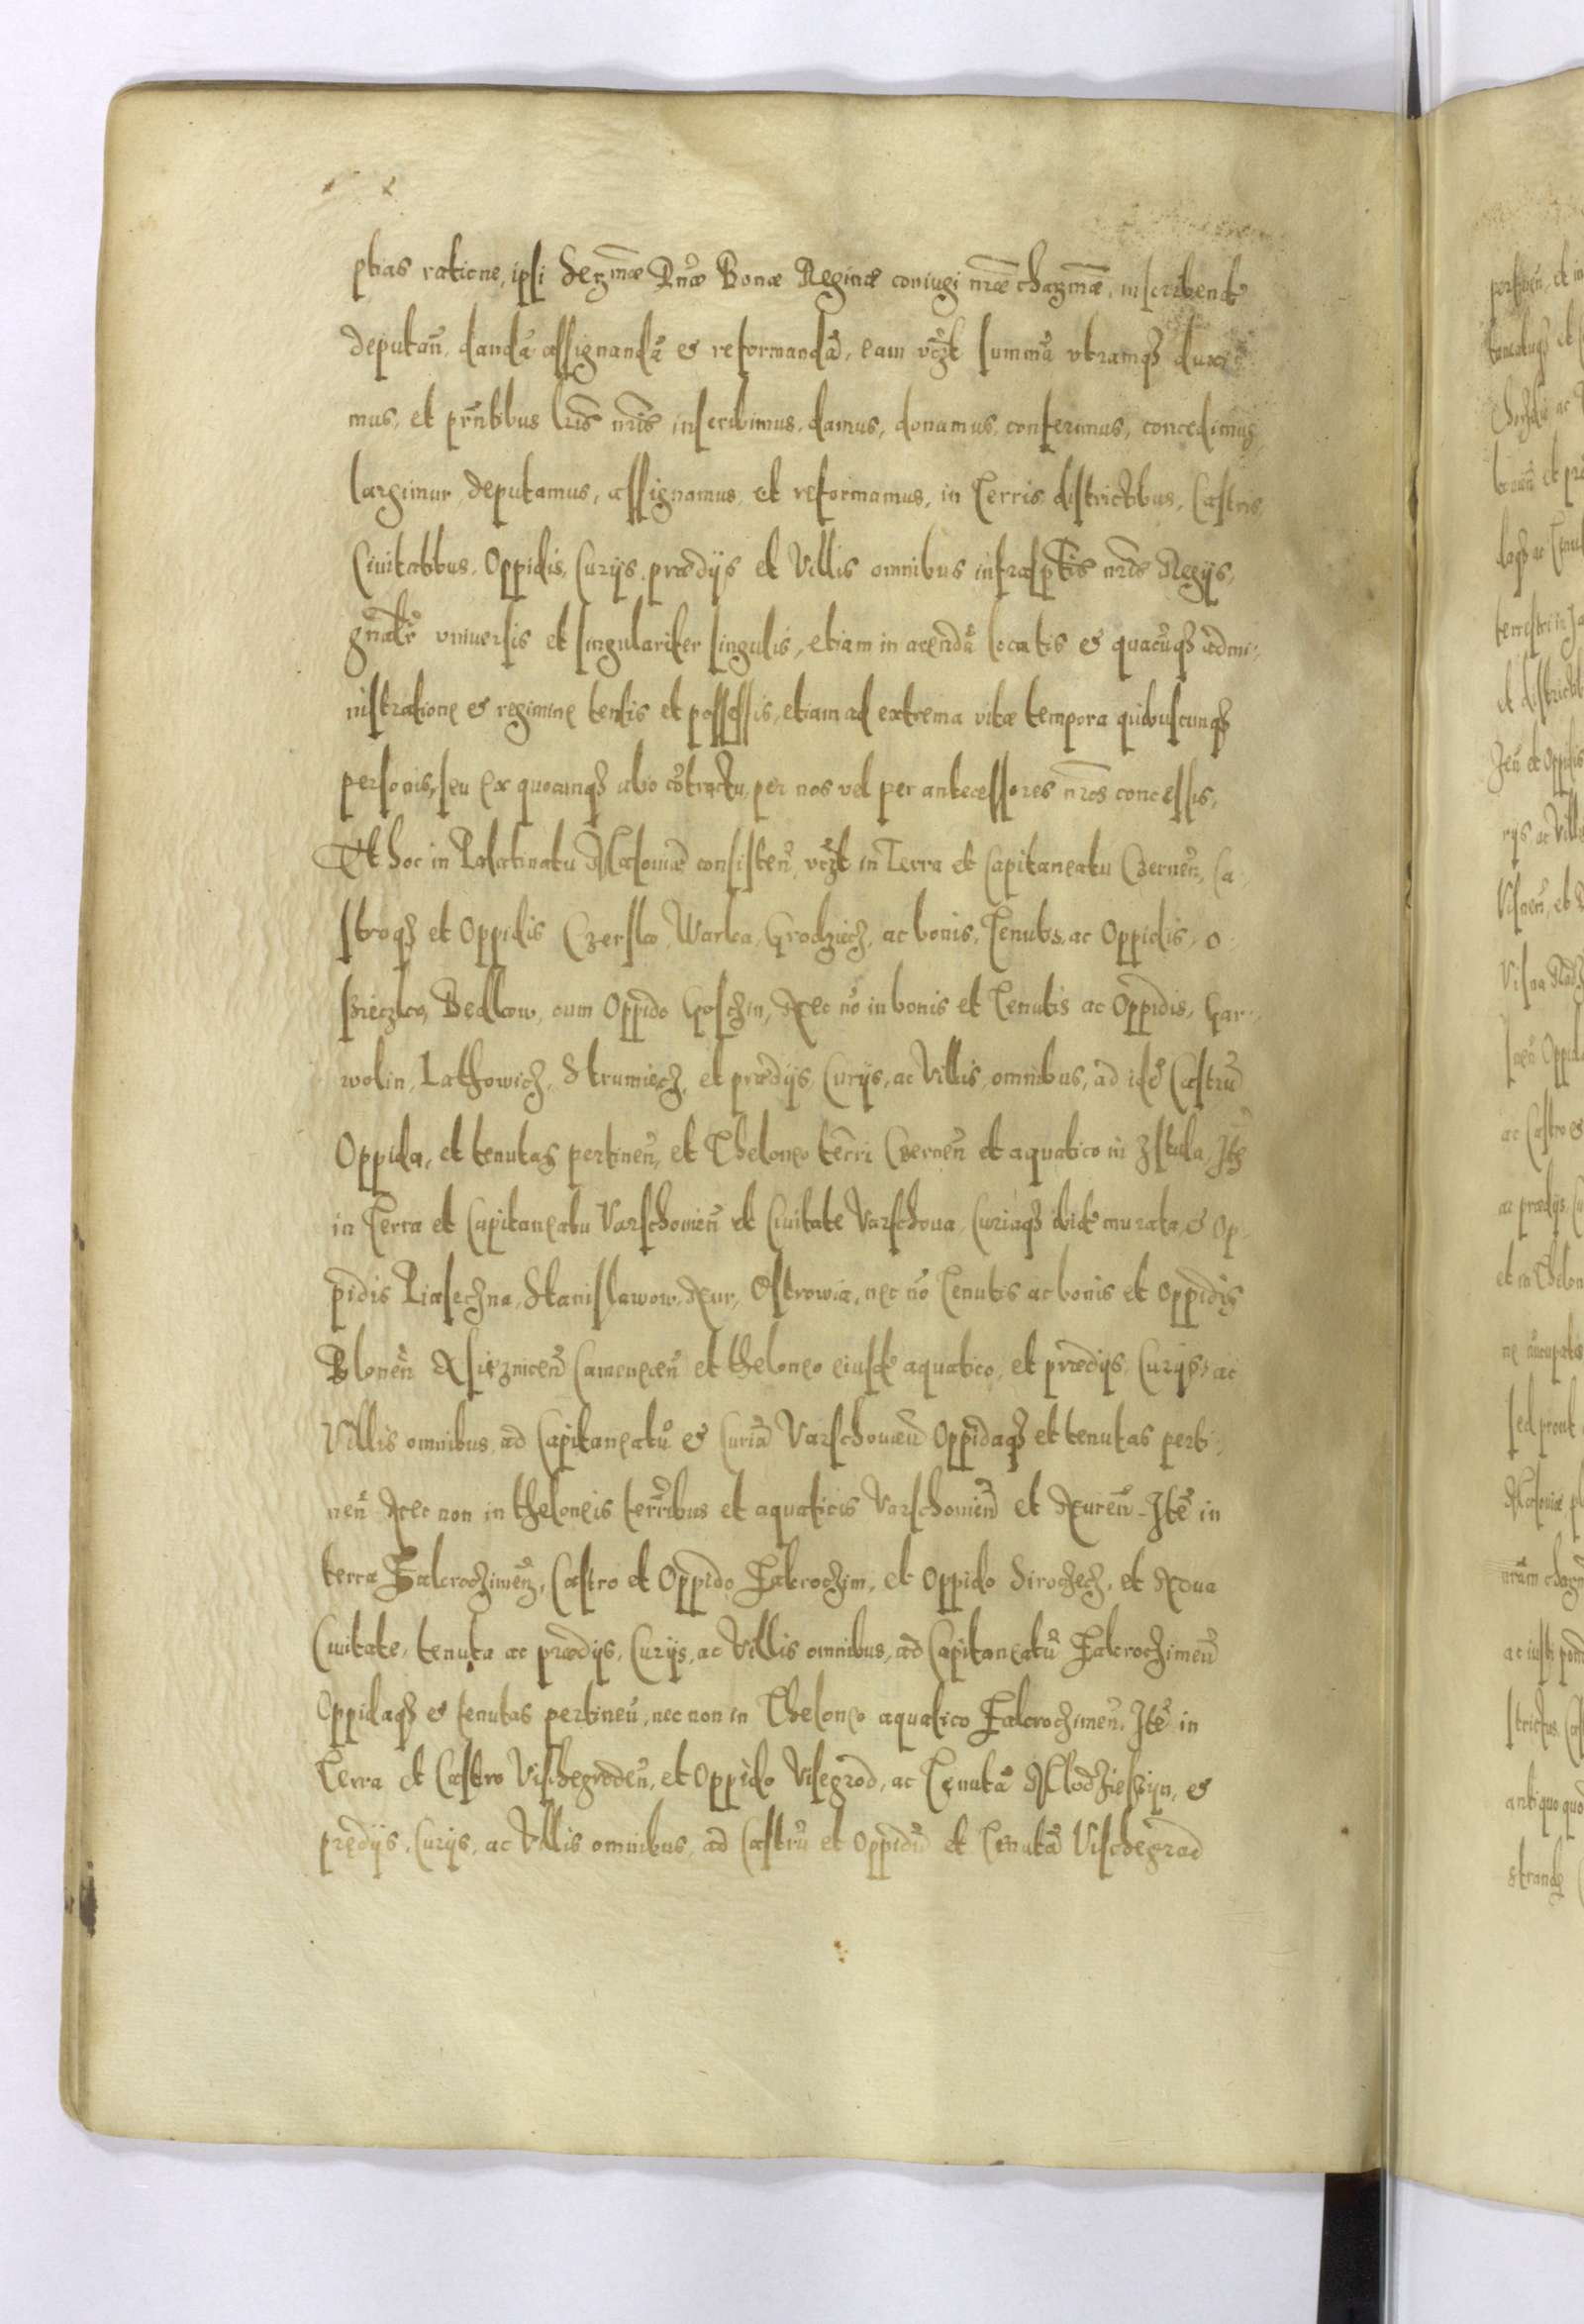 ptias ratione, ipsi Serzmæ Dnæ Bonæ Reginæ coniugi nræ charzmæ, inscribend
deputan, dandã assignandã et reformandã, eam vczlt summã vtramqz duxi
mus, et prntibus lris nris inscribimus, damus, donamus, conferimus, concedimus
largimur deputamus, assignamus et reformamus, in Terris districtibus, Castris
Ciuitatibus, Oppidis, Curijs, prædijs et Villis omnibus infrasptis nris Regijs,
gnalr vniuersis et singulariter singulis, etiam in arendã locatis et quacũqz admi-
nistratione et regimine tentis et possessis, etiam ad extrema vitæ tempora quibuscunqz
personis, seu ex quocunqz alio cõtractu, per nos vel per antecessores nros concessis,
Et hoc in Palatinatu Masouiæ consisten, vczlt in Terra et Capitaneatu Czernen, Ca-
stroqz et Oppidis Czersko, Warka, Grodziecz, ac bonis, Tenutis, ac Oppidis, O-
szieczko, Bedlkow, cum Oppido Goschin, Nec nõ in bonis et Tenutis ac Oppidis, Gar-
wolin, Lathowicz, Strumiecz, et prædijs, Curijs, ac Villis omnibus, ad idẽ Castrũ
Oppida, et tenutas pertinen, et Theloneo terri Czernen et aquatico in Istula, Itẽ
in Terra et Capitaneatu Varschouien et Ciuitate Varschoua, Curiaqz ibidẽ murata, et Op-
pidis Piasechna, Stanislawow, Nur, Ostrowia, nec nõ Tenutis ac bonis et Oppidis
Blonen Nsieznicen Camenecen et theloneo eiusdẽ aquatico, et prædijs, Curijs, ac
Villis omnibus, ad Capitaneatũ et Curiã Varschouien Oppidaqz et tenutas perti-
nen Nec non in theloneis terribus et aquaticis Varschouien et Nuren. Itẽ in
terra Zakrochimen, Castro et Oppido Zakrochim, et Oppido Sirochech, et Noua
Ciuitate, tenuta ac prædijs, Curijs, ac Villis omnibus, ad Capitaneatũ Zakrochimen
Oppidaqz et tenutas pertinen, nec non in Theloneo aquatico Zakrochimen, Itẽ in
Terra et Castro Vischegroden, et Oppido Visegrod, ac Tenutã Mlodzieszijn, et
prędijs, Curijs, ac Villis omnibus, ad Castrũ et Oppidũ et Tenutã Vischegrad